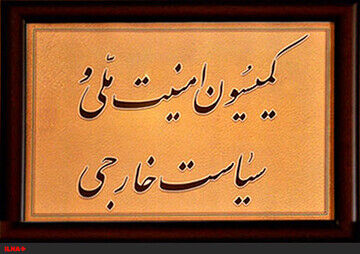 کمیسیون امنیت ملی و
سیاست خارجی
ILNA